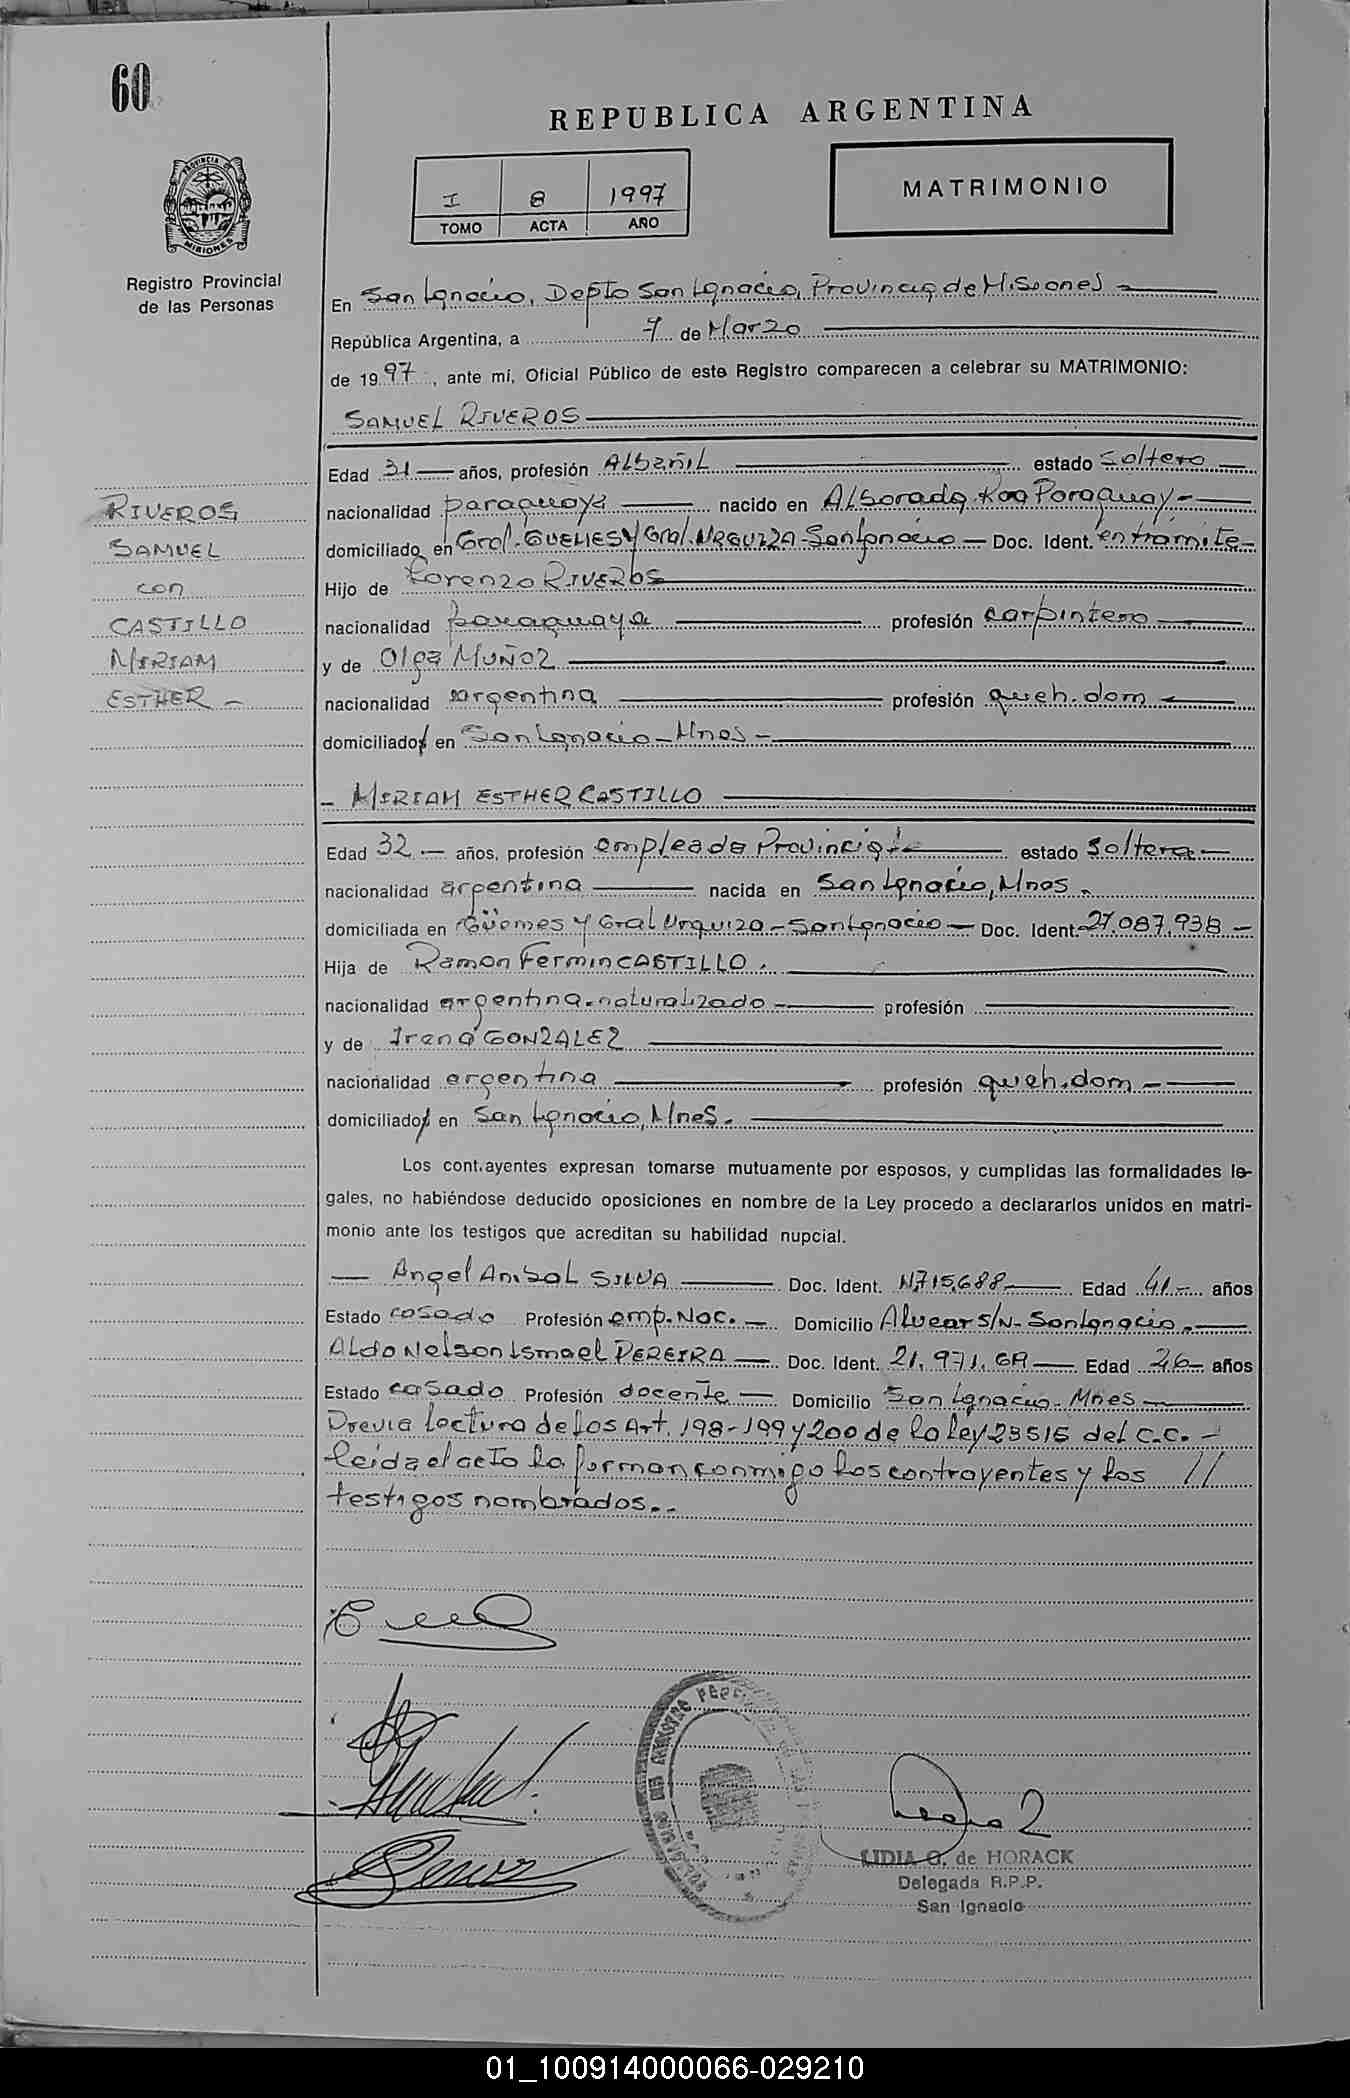 60
REPUBLICA ARGENTINA
I 8 1997
TOMO ACTA AÑO
MATRIMONIO
PROVINCIA DE MISIONES
Registro Provincial
de las Personas
En San Ignacio, Depto San Ignacio, Provincia de Misiones -
República Argentina, a 7 de Marzo
de 1997, ante mí, Oficial Público de este Registro comparecen a celebrar su MATRIMONIO:
SAMUEL RIVEROS
Edad 31 años, profesión ALbañiL estado soltero
nacionalidad paraguaya nacido en ALborada, Paraguay -
domiciliado en Gral. GUEMES y Gral. URQUIZA - San Ignacio - Doc. Ident. en trámite -
Hijo de Lorenzo RIVEROS
nacionalidad paraguaya profesión carpintero
y de Olga MUÑOZ
nacionalidad argentina profesión queh. dom
domiciliados en San Ignacio - Mnes -
RIVEROS
SAMUEL
con
CASTILLO
MIRIAM
ESTHER -
- MIRIAM ESTHER CASTILLO
Edad 32 - años, profesión empleada Provincial estado soltera -
nacionalidad argentina nacida en San Ignacio, Mnes.
domiciliada en Güemes y Gral Urquiza - San Ignacio - Doc. Ident. 27.087.938 -
Hija de Ramon Fermin CASTILLO.
nacionalidad argentina-naturalizado - profesión
y de Irena GONZALEZ
nacionalidad argentina profesión queh. dom -
domiciliados en San Ignacio, Mnes.
Los cont.ayentes expresan tomarse mutuamente por esposos, y cumplidas las formalidades le-
gales, no habiéndose deducido oposiciones en nombre de la Ley procedo a declararlos unidos en matri-
monio ante los testigos que acreditan su habilidad nupcial.
- Angel Anibal SILVA Doc. Ident. Edad 41 - años
Estado casado Profesión emp. Nac. - Domicilio Alvear S/N - San Ignacio -
ALdo Nelson Ismael PEREIRA - Doc. Ident. Edad 26 - años
Estado casado Profesión docente - Domicilio San Ignacio - Mnes -
Previa lectura de los Art. 198-199 y 200 de la ley 23515 del C.C. -
leida el acta la firman conmigo los contrayentes y los //
testigos nombrados. -
LIDIA G. de HORACK
Delegada R.P.P.
San Ignacio
01_100914000066-029210